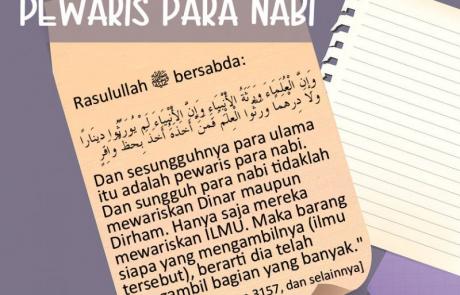 PEWARIS PARA NABI
Rasulullah ﷺ bersabda:
وَإِنَّ الْعُلَمَاءَ وَرَثَةُ الْأَنْبِيَاءِ وَإِنَّ الْأَنْبِيَاءَ لَمْ يُوَرِّثُوا دِينَارًا
وَلَا دِرْهَمًا وَرَّثُوا الْعِلْمَ فَمَنْ أَخَذَهُ أَخَذَ بِحَظٍّ وَافِرٍ
Dan sesungguhnya para ulama
itu adalah pewaris para nabi.
Dan sungguh para nabi tidaklah
mewariskan Dinar maupun
Dirham. Hanya saja mereka
mewariskan ILMU. Maka barang
siapa yang mengambilnya (ilmu
tersebut), berarti dia telah
gambil bagian yang banyak."
3157, dan selainnya]